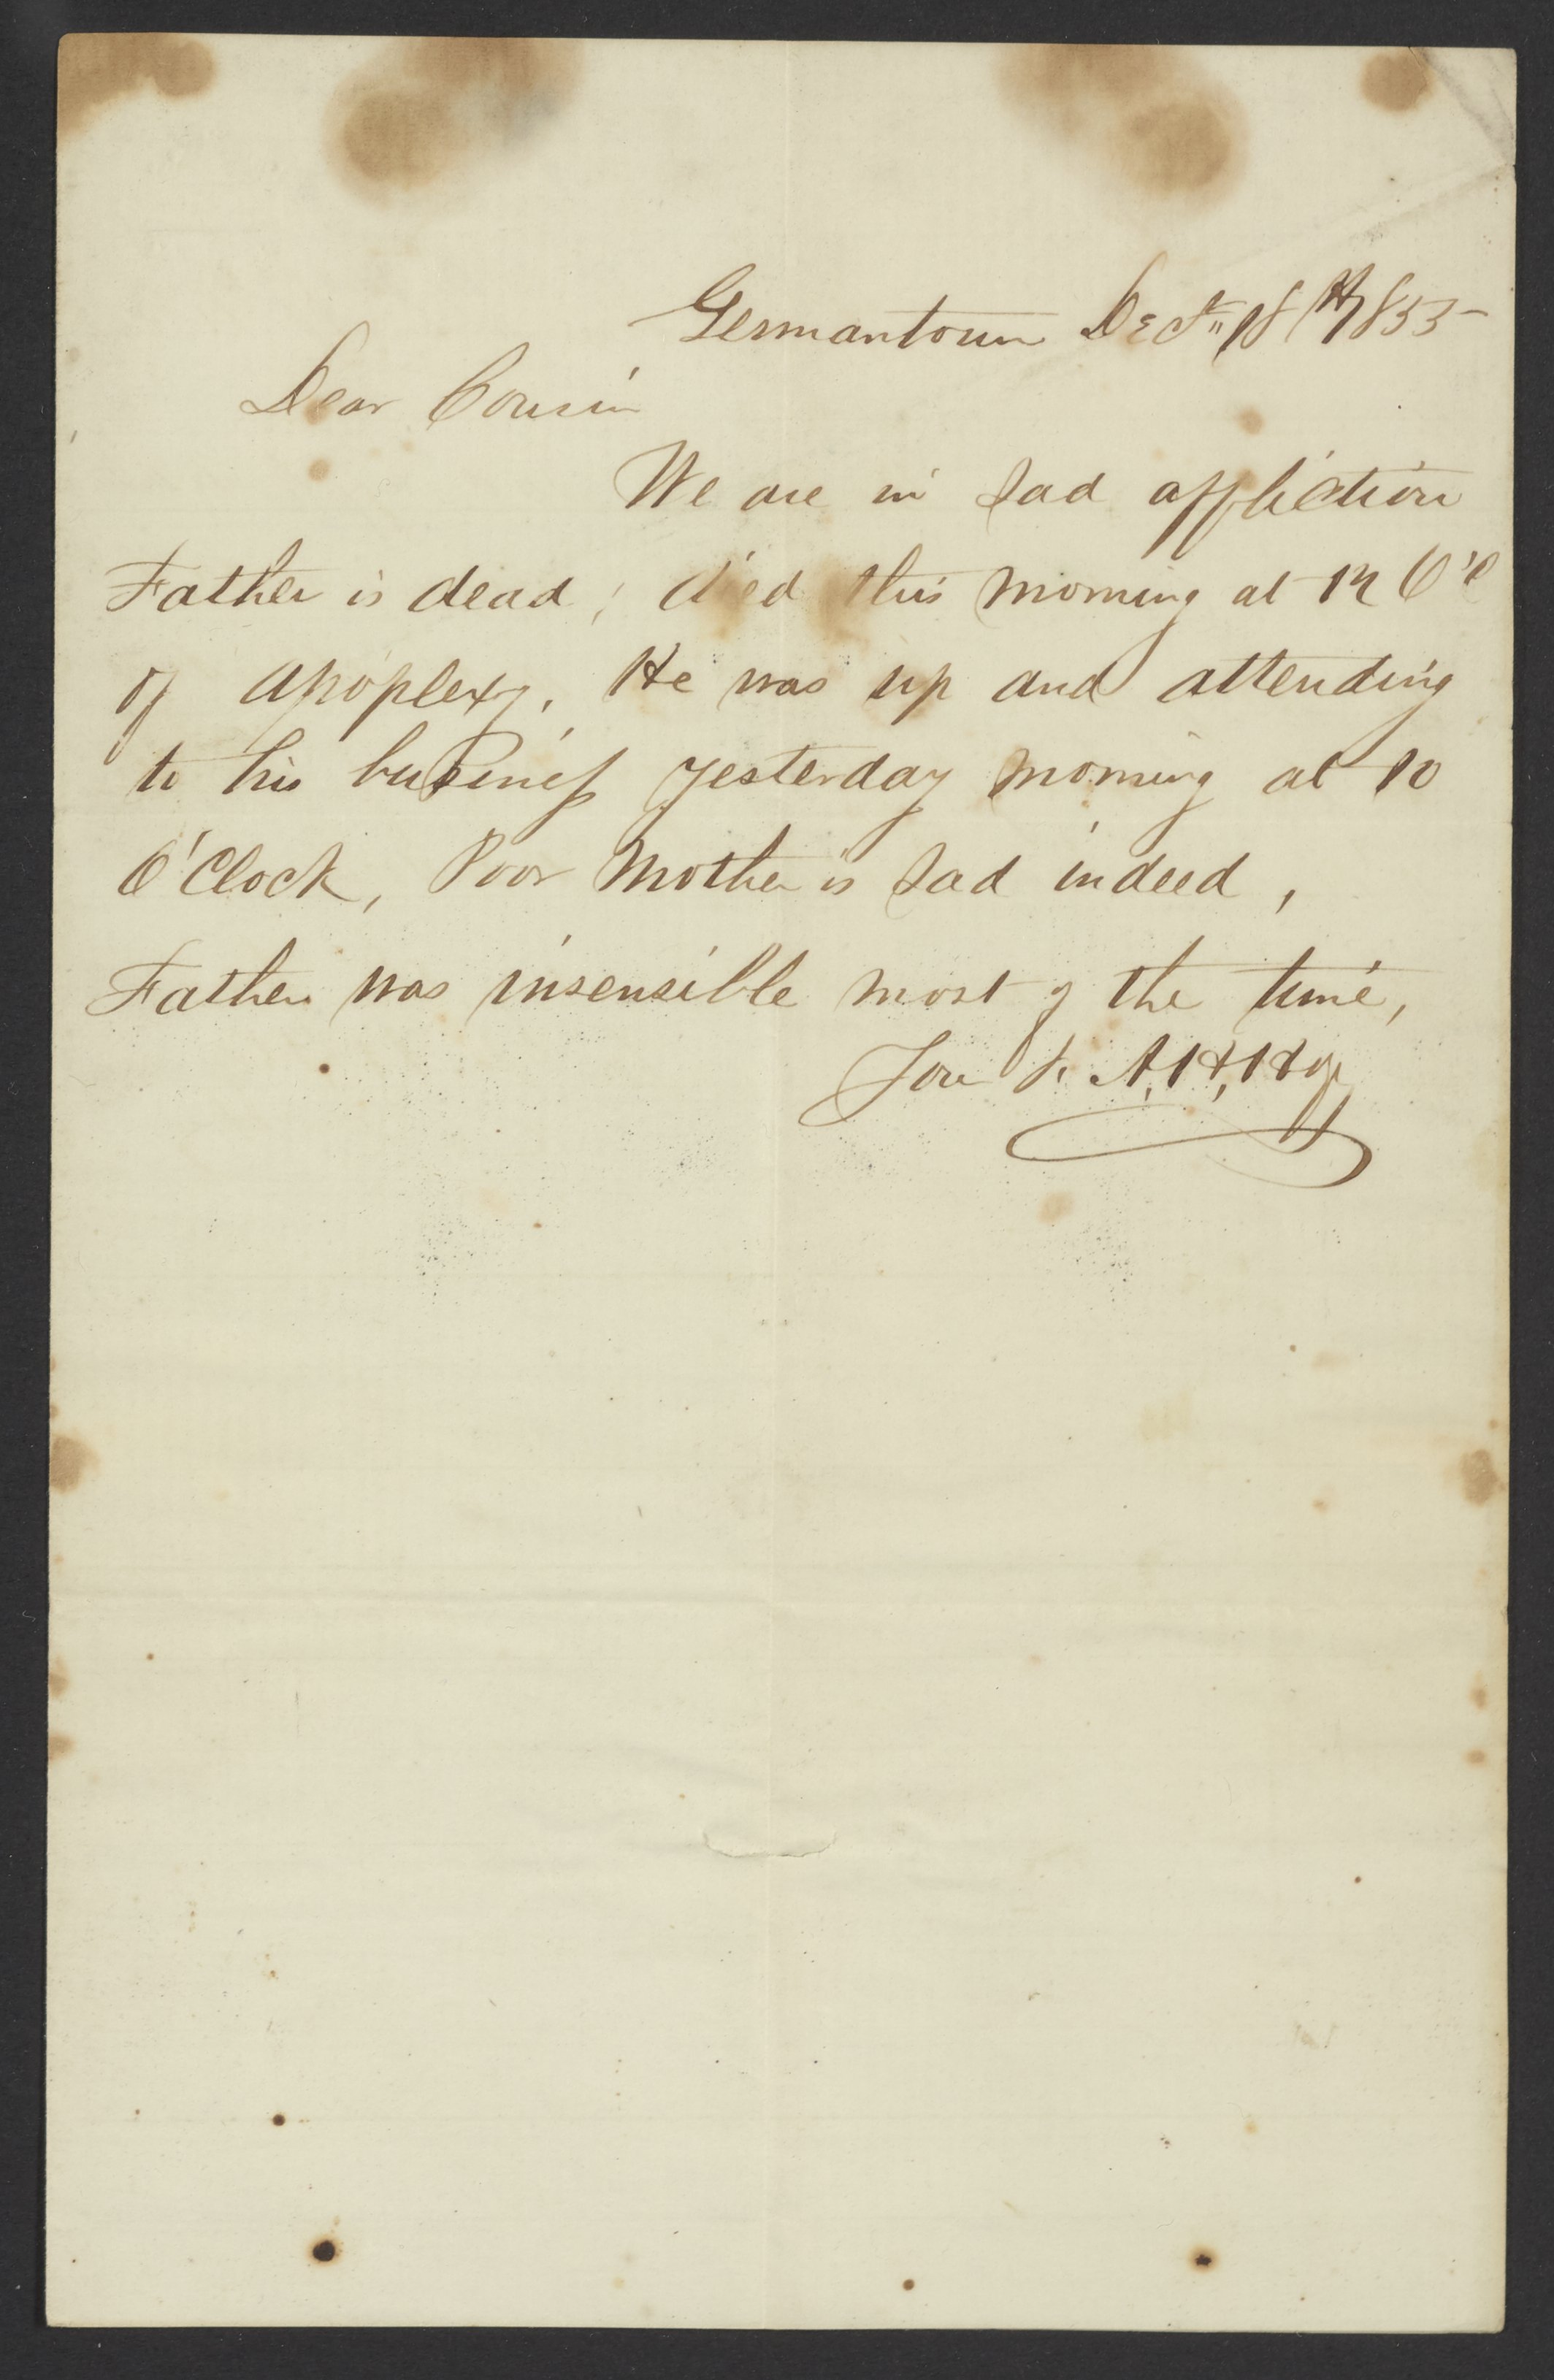 Germantown Dec. 18th 1855
Dear Cousin
We are in sad affliction
Father is dead; died this morning at 12 O'C
of apoplexy. He was up and attending
to his business yesterday morning at 10
O'Clock, Poor Mother is sad indeed,
Father was insensible most of the time,
A, H, H